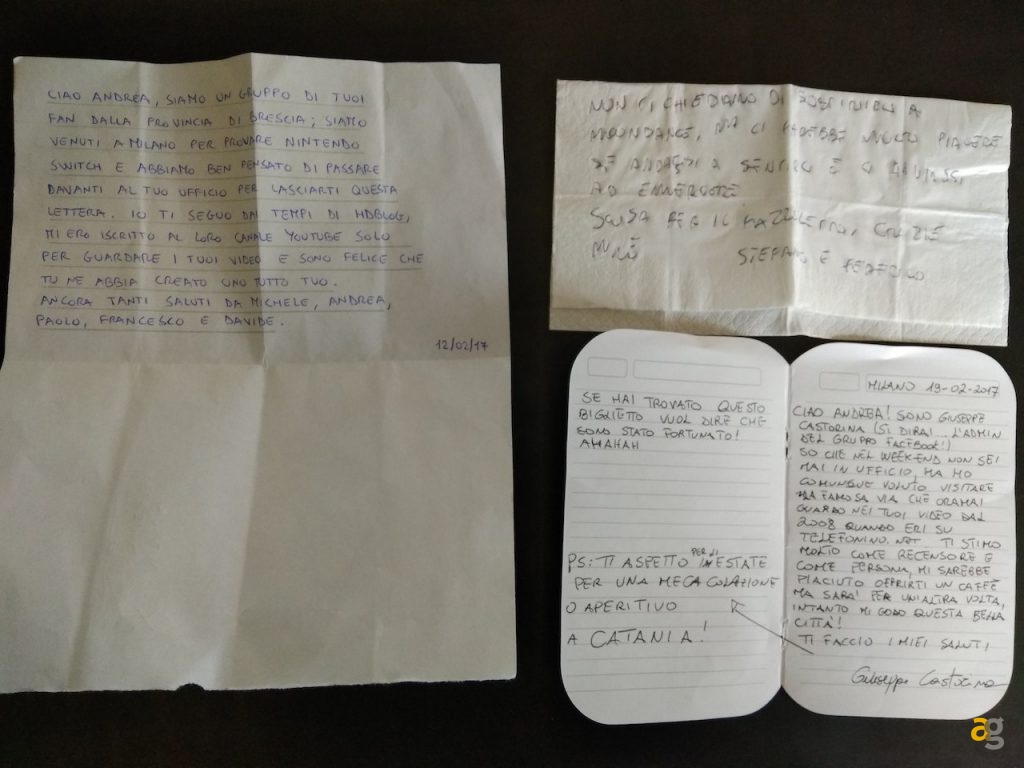 CIAO ANDREA, SIAMO UN GRUPPO DI TUOI
FAN DALLA PROVINCIA DI BRESCIA; SIAMO
VENUTI A MILANO PER PROVARE NINTENDO
SWITCH E ABBIAMO BEN PENSATO DI PASSARE
DAVANTI AL TUO UFFICIO PER LASCIARTI QUESTA
LETTERA. IO TI SEGUO DAI TEMPI DI HDBLOG,
MI ERO ISCRITTO AL LORO CANALE YOUTUBE SOLO
PER GUARDARE I TUOI VIDEO E SONO FELICE CHE
TU NE ABBIA CREATO UNO TUTTO TUO.
ANCORA TANTI SALUTI DA MICHELE, ANDREA,
PAOLO, FRANCESCO E DAVIDE.
12/02/17
NON CI CHIEDIAMO DI A
MA CI FAREBBE MOLTO PIACERE
SE A SENTIRCI E CI
AD
SCUSA PER IL FAZZOLETTO, GRAZIE
STEFANO E FEDERICO
SE HAI TROVATO QUESTO
BIGLIETTO VUOL DIRE CHE
SONO STATO FORTUNATO!
AHAHAH
PS: TI ASPETTO PER L' ESTATE
PER UNA MEGA COLAZIONE
O APERITIVO
A CATANIA!
MILANO 19-02-2017
CIAO ANDREA! SONO GIUSEPPE
CASTORINA (SI DIRAI... L'ADMIN
DEL GRUPPO FACEBOOK!)
SO CHE NEL WEEKEND NON SEI
MAI IN UFFICIO, MA HO
COMUNQUE VOLUTO VISITARE
LA FAMOSA VIA CHE ORAMAI
GUARDO NEI TUOI VIDEO DAL
2008 QUANDO ERI SU
TELEFONINO.NET TI STIMO
MOLTO COME RECENSORE E
COME PERSONA, MI SAREBBE
PIACIUTO OFFRIRTI UN CAFFÈ
MA SARA' PER UN'ALTRA VOLTA,
INTANTO MI GODO QUESTA BELLA
CITTA'!
TI FACCIO I MIEI SALUTI
Giuseppe Castorina
ag